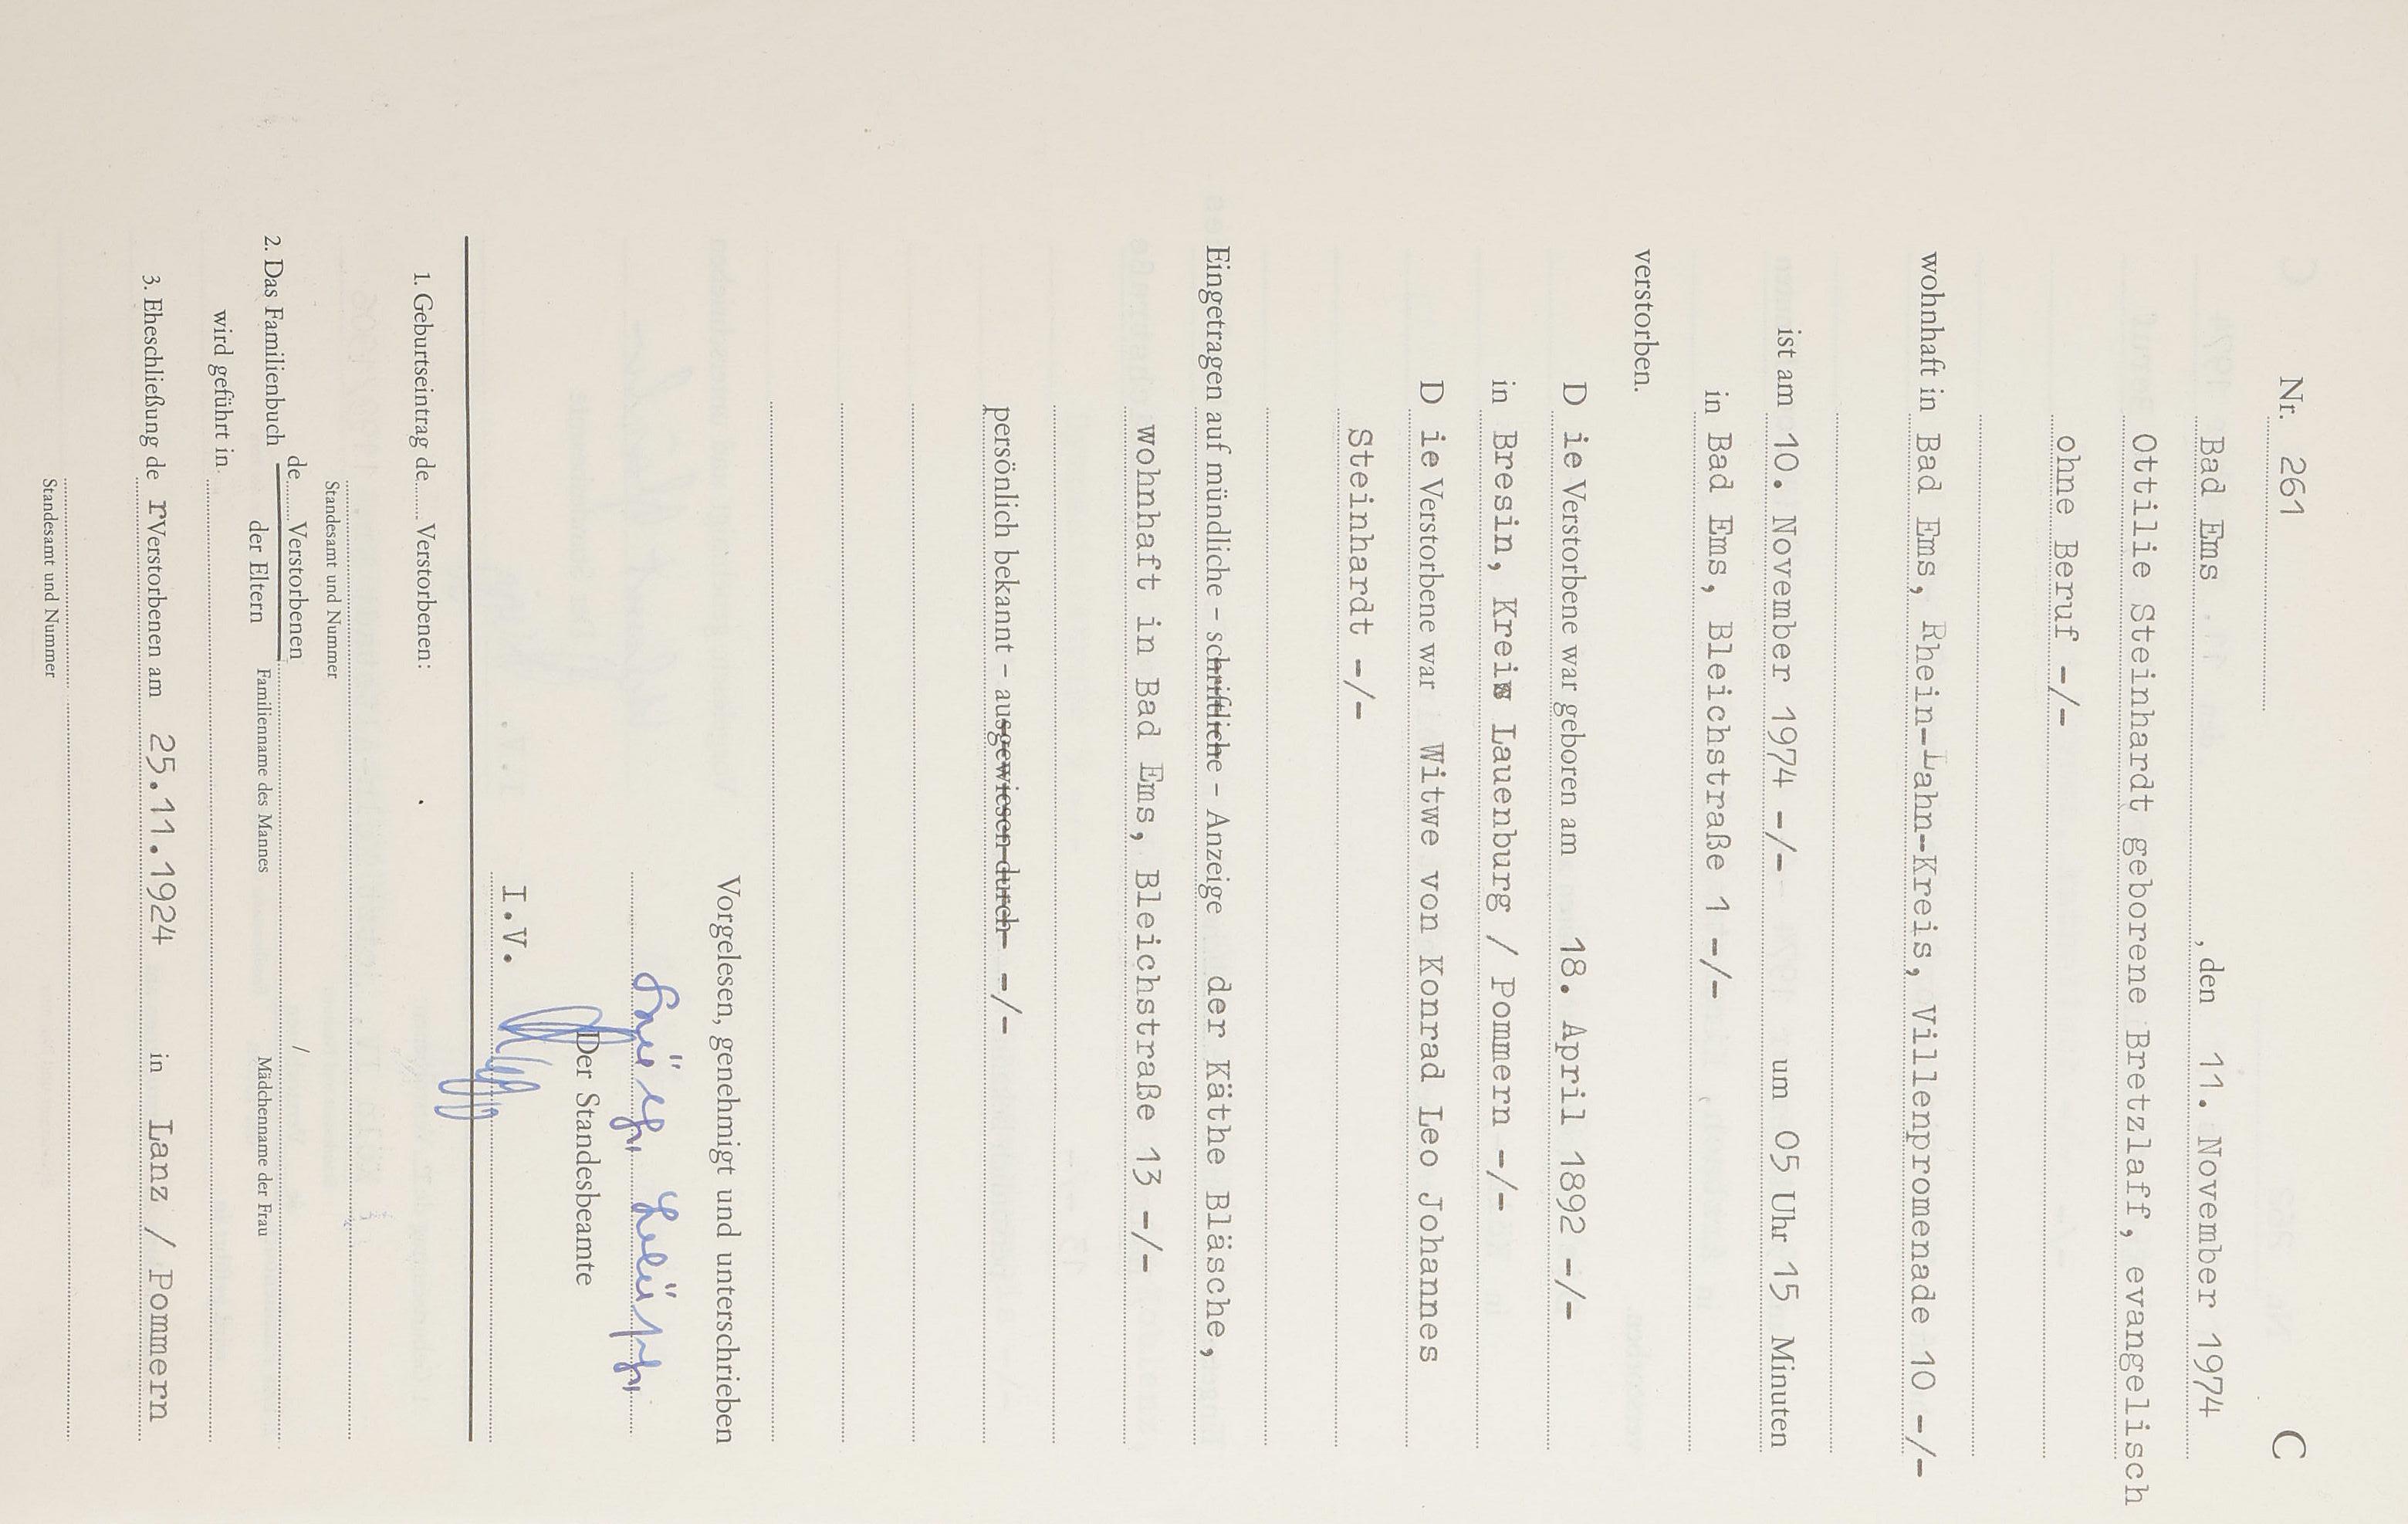 Nr. 261 C
Bad Ems , den 11. November 1974
Ottilie Steinhardt geborene Bretzlaff, evangelisch
ohne Beruf -/-
wohnhaft in Bad Ems, Rhein-Lahn-Kreis, Villenpromenade 10 -/-
ist am 10. November 1974 -/- um 05 Uhr 15 Minuten
in Bad Ems, Bleichstraße 1 -/-
verstorben.
D ie Verstorbene war geboren am 18. April 1892 -/-
in Bresin, Kreis Lauenburg / Pommern -/-
D ie Verstorbene war Witwe von Konrad Leo Johannes
Steinhardt -/-
Eingetragen auf mündliche - schriftliche - Anzeige der Käthe Bläsche,
wohnhaft in Bad Ems, Bleichstraße 13 -/-
persönlich bekannt - ausgewiesen durch -/-
Vorgelesen, genehmigt und unterschrieben
Der Standesbeamte
I.V.
1. Geburtseintrag de Verstorbenen:
Standesamt und Nummer
2. Das Familienbuch de Verstorbenen /
der Eltern Familienname des Mannes Mädchenname der Frau
wird geführt in
3. Eheschließung de r Verstorbenen am 25.11.1924 in Lanz / Pommern
Standesamt und Nummer